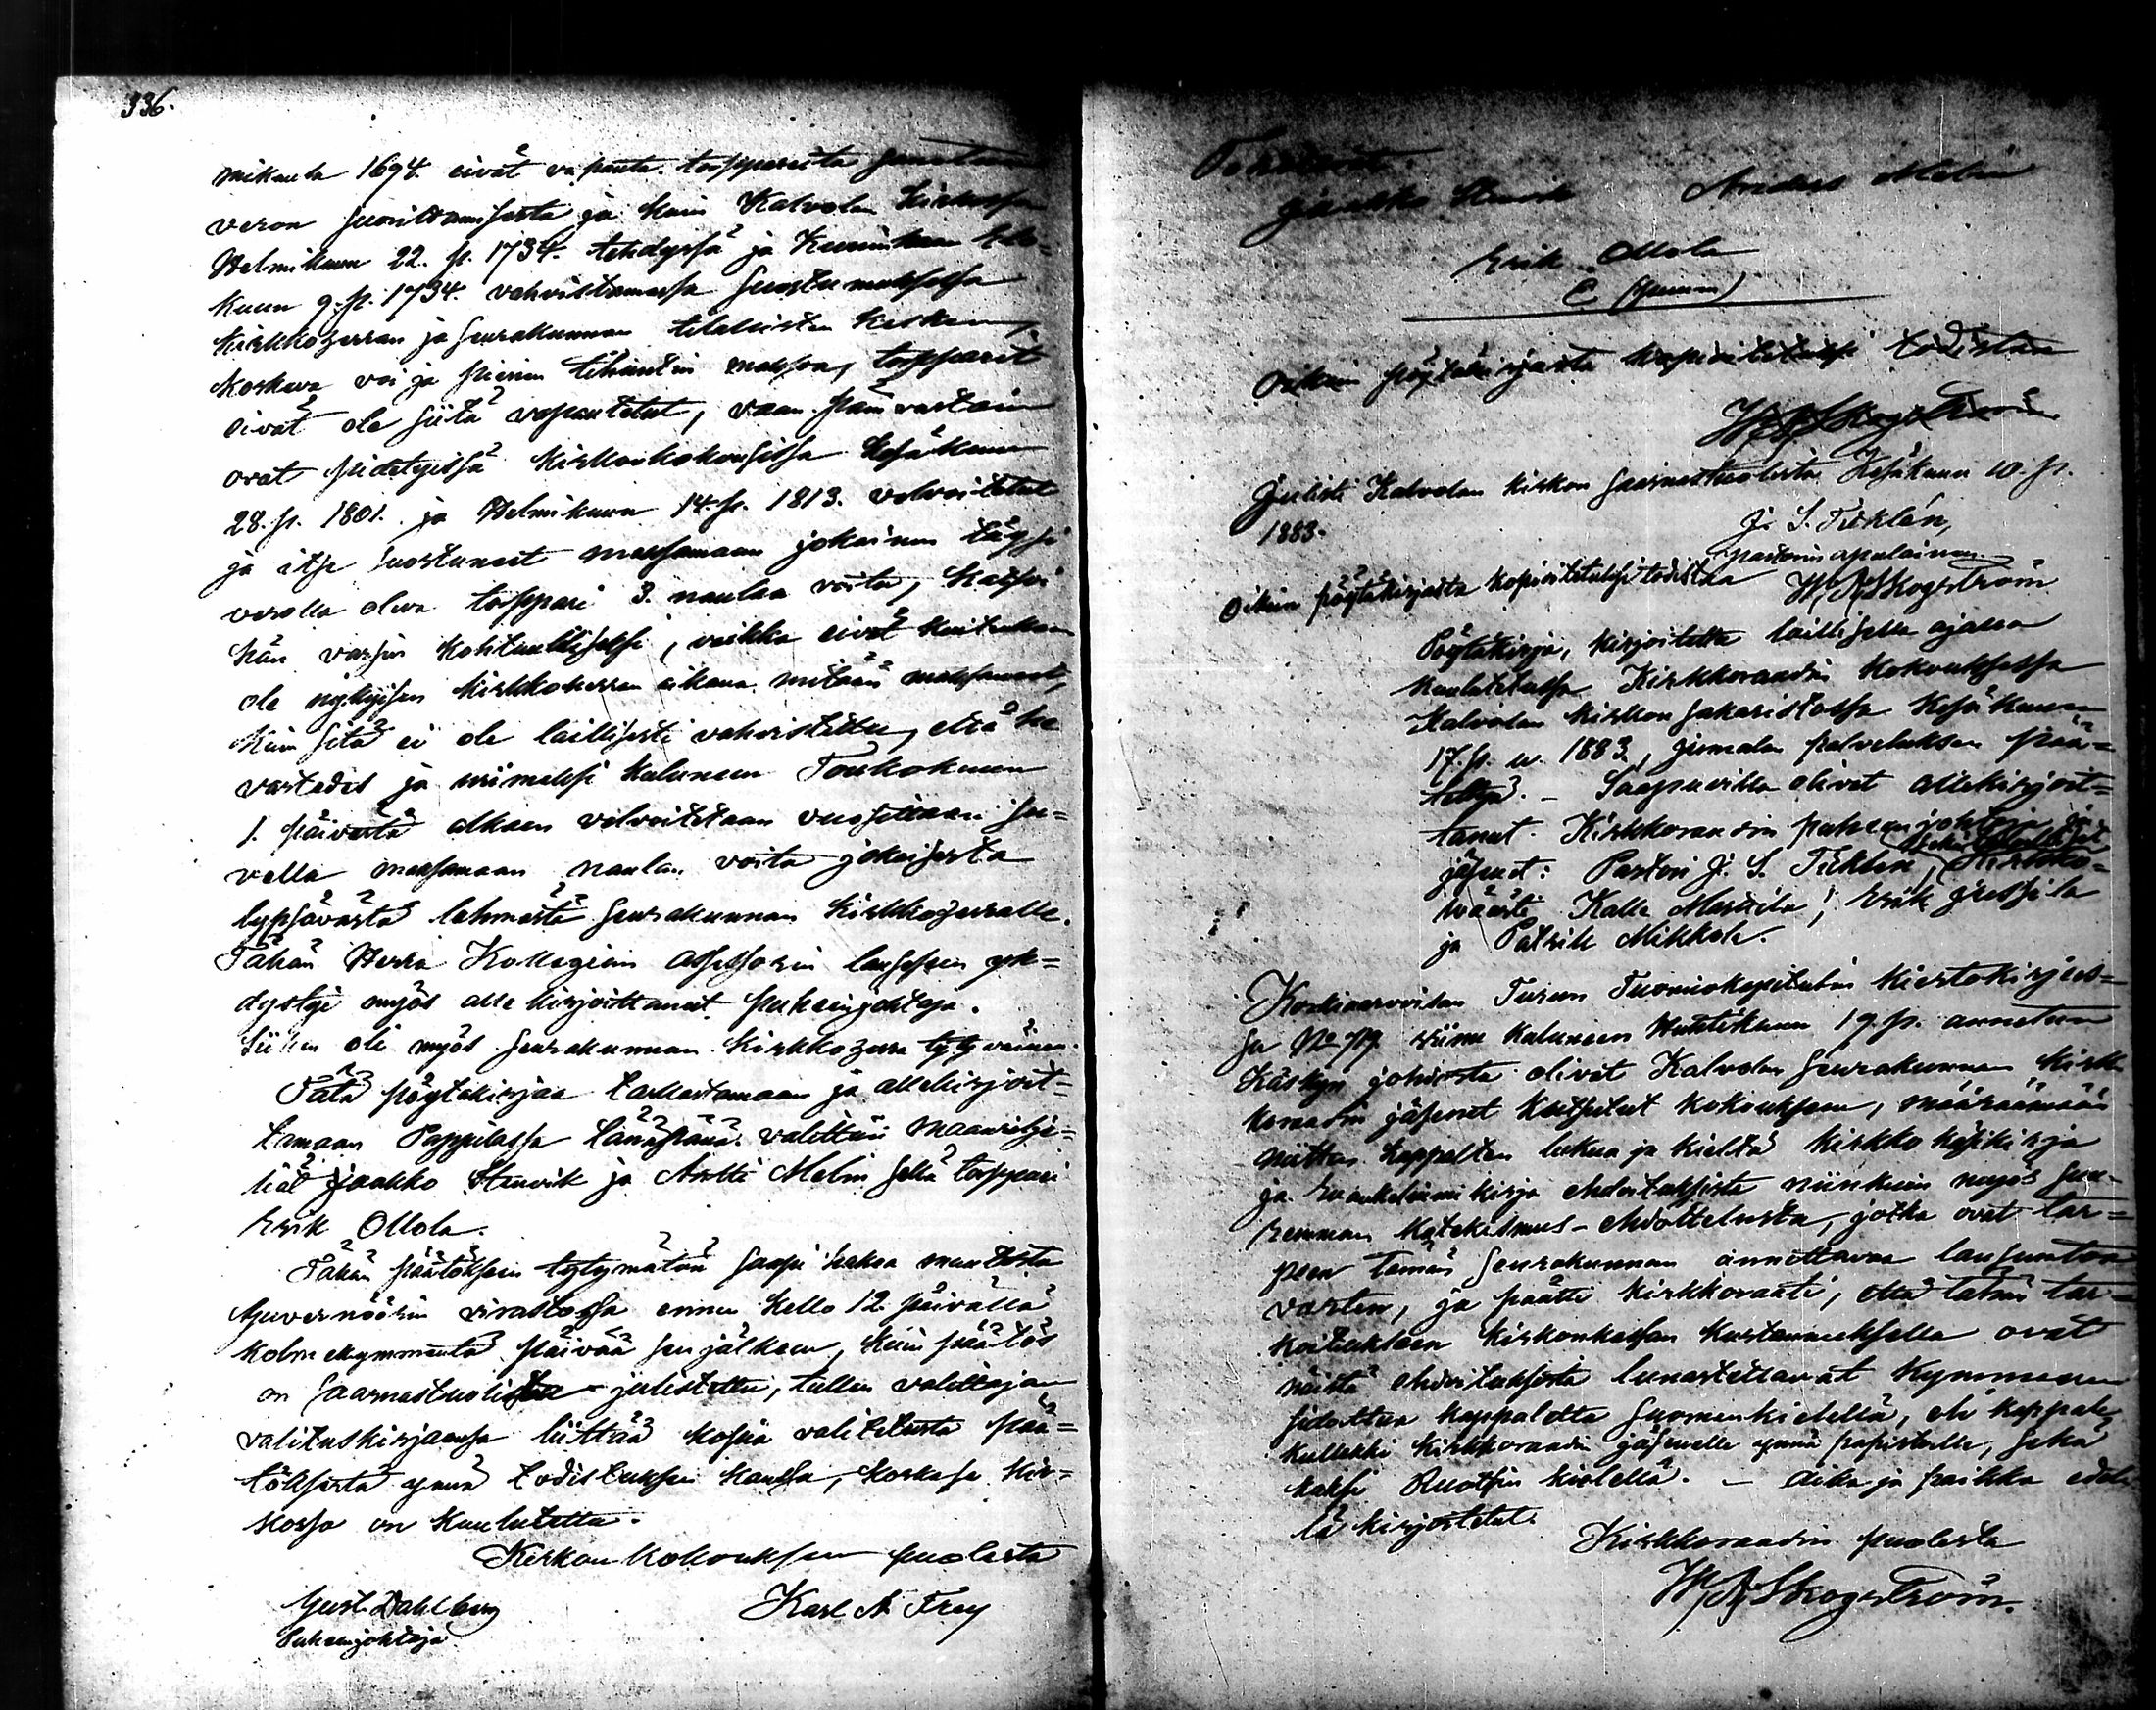 336.
mikuuta 1694. eivät vapauta torppareita saman
veron suorittamisesta ja kuin Kalvolan kirkossa
Helmikuun 22. p. 1734. tehdyssä ja Kuninkaan
kuun 9. p. 1734. vahvistamassa suostumuksessa
kirkkoherran ja seurakunnan tilallisten kesken,
koskeva voi ja pienen tihuntin maksoa, torpparit
eivät ole siitä vapautetut, vaan päin vastoin
ovat pidetyissä kirkonkokouksissa Kesäkuun
28. p. 1801. ja Helmikuun 14. p. 1813. velvoitetut
ja itse suostuneet maksamaan jokainen täysi
verolla oleva torppari 3. naulaa voita, katsoi
hän varsin kohtuulliseksi, vaikka eivät kuitenkaan
ole nykyisen kirkkoherran aikana mitään maksaneet,
kuin sitä ei ole laillisesti vahvistettu, että he
vastedes ja viimeksi kuluneen Toukokuun
1. päivästä alkaen velvoitetaan vuosittain su-
vella maksamaan naulan voita jokaisesta
lypsävästä lehmästä seurakunnan kirkkoherralle.
Tähän Herra Kollegian assessorin lauseesen yh-
dystyi myös allekirjoittanut puheenjohtaja.
Siihen oli myös seurakunnan kirkkoherra tytyväinen.
Tätä pöytäkirjaa tarkastamaan ja allekirjoit-
tamaan Pappilassa tänäpänä valittiin maanvilje-
liät Jaakko Stenvik ja Antti Melin sekä torppari
Erik Ollola.
Tähän päätökseen tytymätön saapi hakea muutosta
Guvernöörin virastossa ennen kello 12 päivällä
kolmekymmentä päivää sen jälkeen, kuin päätös
on saarnastuolista julistettu, tullen valittajan
valituskirjaansa liittää kopia valitetusta pää-
töksestä ynnä todistuksen kanssa, koska se kir-
kossa on kuulutettu.
Kirkonkokouksen puolesta
Gust. Dahlberg Karl A. Frey
Puheenjohtaja
Jaakko Stenvik Anders Melin
Erik Ollola
(puumm.)
Oikein pöytäkirjasta kopioitetuksi todistaa
W. R. Skogström
Julisti Kalvolan kirkon saarnastuolista Kesäkuun 10. p.
1883. J. S. Ticklén,
pastorin apulainen
Oikein pöytäkirjasta kopioitetuksi todistaa W. R. Skogström
Pöytäkirja, kirjoitettu laillisella ajalla
kuulutetussa Kirkkoraadin kokouksessa
Kalvolan kirkon sakaristossa Kesäkuun
17. p. v. 1883, jumalan palveluksen pää-
tettyä. – Saapuvilla olivat allekirjoit-
tanut Kirkkoraadin puheenjohtaja ja
jäsenet: Pastori J. S. Ticklén, Kirkko-
väärti Kalle Marttila, Erik Jussila
ja Patrik Mikkola.
Korkiaarvoisan Turun Tuomiokapitulin kiertokirjees-
sa No 719 viime kuluneen Huhtikuun 19. p. annetun
käskyn johdosta olivat Kalvolan seurakunnan kirk-
koraadin jäsenet kutsutut kokoukseen, määräämään
niitten kappalten lukua ja kieltä kirkko käsikirja
ja Evankeliumi kirja ehdotuksista niinkuin myös suu-
remman Katekismus-ehdottelusta, jotka ovat tar-
peen tämän seurakunnan annettavaa lausuntoa
varten, ja päätti kirkkoraati, että tähän tar-
koitukseen kirkonkassan kustannuksella ovat
näistä ehdotuksista lunastettavat kymmenen
sidottua kappaletta Suomenkielellä, eli kappale
kullekin kirkkoraadin jäsenelle ynnä papistolle, sekä
kaksi Ruotsin kielellä. – Aika ja paikka edel-
lä kirjoitetut.
Kirkkoraadin puolesta
W. R. Skogström.